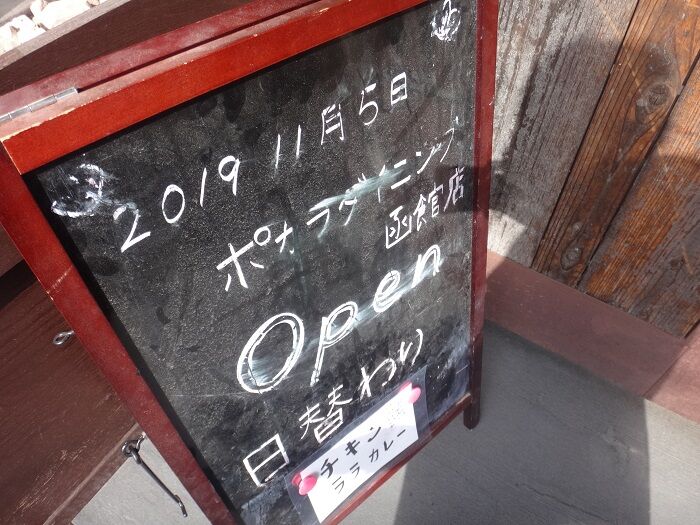 2019 11月5日
ポカラダイニング
函館店
Open
日替わり
チキン
ララカレー